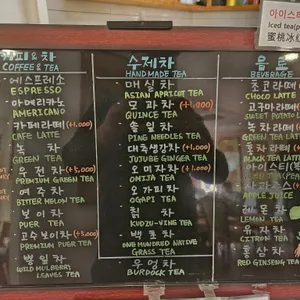 커피&차
COFFEE & TEA
에스프레소
ESPRESSO
아메리카노
AMERICANO
카페라떼 (+1,000)
CAFE LATTE
녹 차
GREEN TEA
우전차 (+5,000)
PREMIUM GREEN TEA
여주차
BITTER MELON TEA
보이차
PUER TEA
고수보이차 (+3,000)
PREMIUM PUER TEA
뽕잎차
WILD MULBERRY
LEAVES TEA
수제차
HANDMADE TEA
매실차
ASIAN APRICOT TEA
모과차 (+1,000)
QUINCE TEA
솔잎차
PINE NEEDLES TEA
대추생강차 (+1,000)
JUJUBE GINGER TEA
오미자차 (+1,000)
OMIJA TEA
오가피차
OGAPI TEA
칡 차
KUDZU-VING TEA
백초차
ONE HUNDRED NATIVE
GRASS TEA
우엉차
BURDOCK TEA
음료
BEVERAGE
초코라떼
CHOCO LATTE
고구마라떼
SWEET POTATO
녹차라떼
GREEN TEA
홍차라떼
BLACK TEA LATTE
아이스티
사과주스
APPLE JUICE
LEMON TEA
유자차
CITRON TEA
홍삼차
RED GINSENG TEA
아이스티
Iced tea
蜜桃冰紅